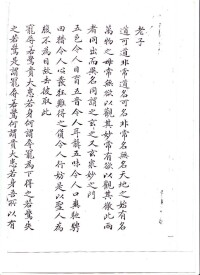 老子
道可道非常道名可名非常名無名天地之始有名
萬物之母常無欲以觀其妙常有欲以觀其徼此兩
者同出而異名同謂之玄之又玄眾妙之門
五色令人目盲五音令人耳聾五味令人口爽馳騁
田獵令人心發狂難得之貨令人行妨是以聖人為
腹不為目故去彼取此
寵辱若驚貴大患若身何謂寵辱為下得之若驚失
之若驚是謂寵辱若驚何謂貴大患若身吾所以有